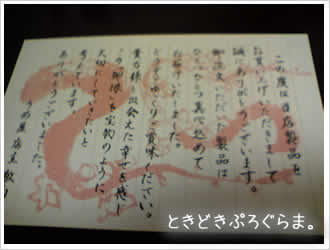 この度は当店製品を
お買い上げいただきまして
誠にありがとうございます。
御注文いただいた製品は
ひとつひとつ真心込めて
お届けいたしました。
どうぞごゆっくりご賞味ください。
貴方様と出会えた幸せを感じ
この御縁を宝物のように
大切にしていきたいと
考えています。
ありがとうございました。
うめ屋店主
ときどきぷろぐらま。